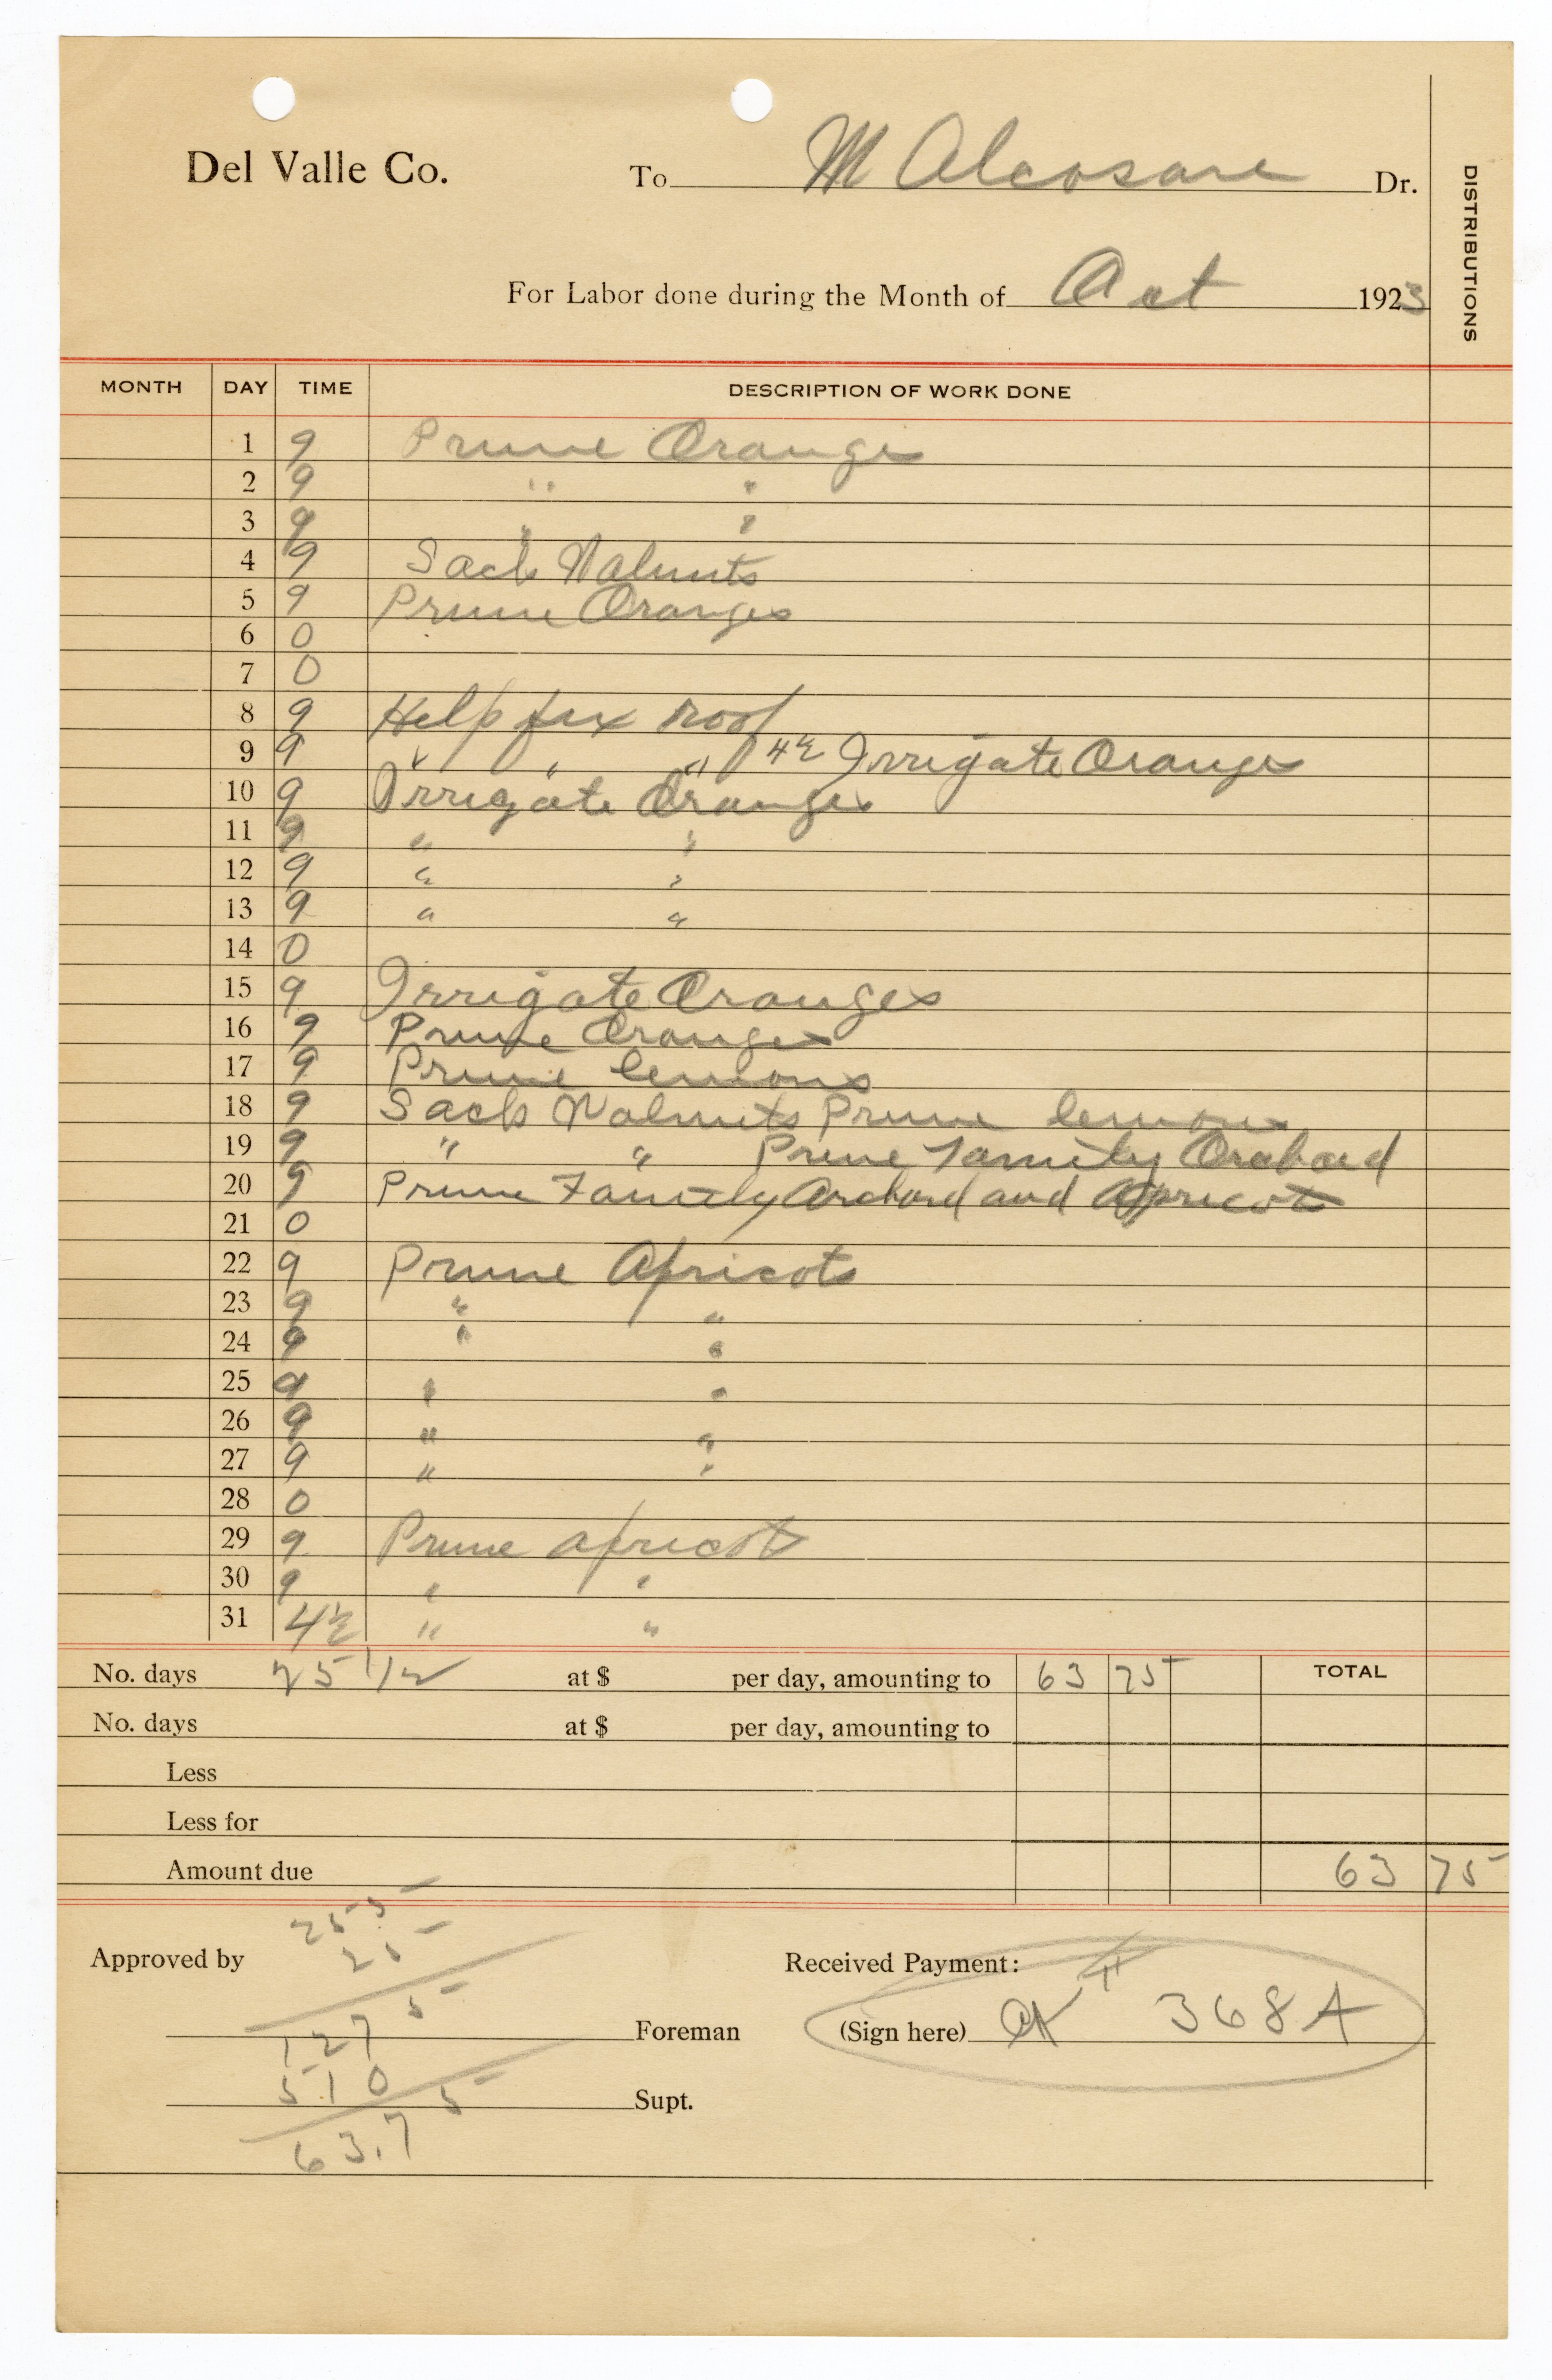 Del Valle Co. To M Alcosare Dr.
DISTRIBUTIONS
For Labor done during the Month of Oct 1923
MONTH DAY TIME DESCRIPTION OF WORK DONE
1 9 Prune Oranges
2 9 " "
3 9 " "
4 9 Sack Walnuts
5 9 Prune Oranges
6 0
7 0
8 9 Help fix roof
9 9 " " " 4½ Irrigate Oranges
10 9 Irrigate Oranges
11 9 " "
12 9 " "
13 9 " "
14 0
15 9 Irrigate Oranges
16 9 Prune Oranges
17 9 Prune lemons
18 9 Sack Walnuts Prune lemons
19 9 " " Prune Family Orchard
20 9 Prune Family Orchard and Apricots
21 0
22 9 Prune Apricots
23 9 " "
24 9 " "
25 9 " "
26 9 " "
27 9 " "
28 0
29 9 Prune apricots
30 9 " "
31 4½ " "
No. days 25 1/2 at $ per day, amounting to 63 75 TOTAL
No. days at $ per day, amounting to
Less
Less for
Amount due 63 75
255
25
Approved by Received Payment:
1275
Foreman (Sign here) CK # 368A
510
Supt.
63.75